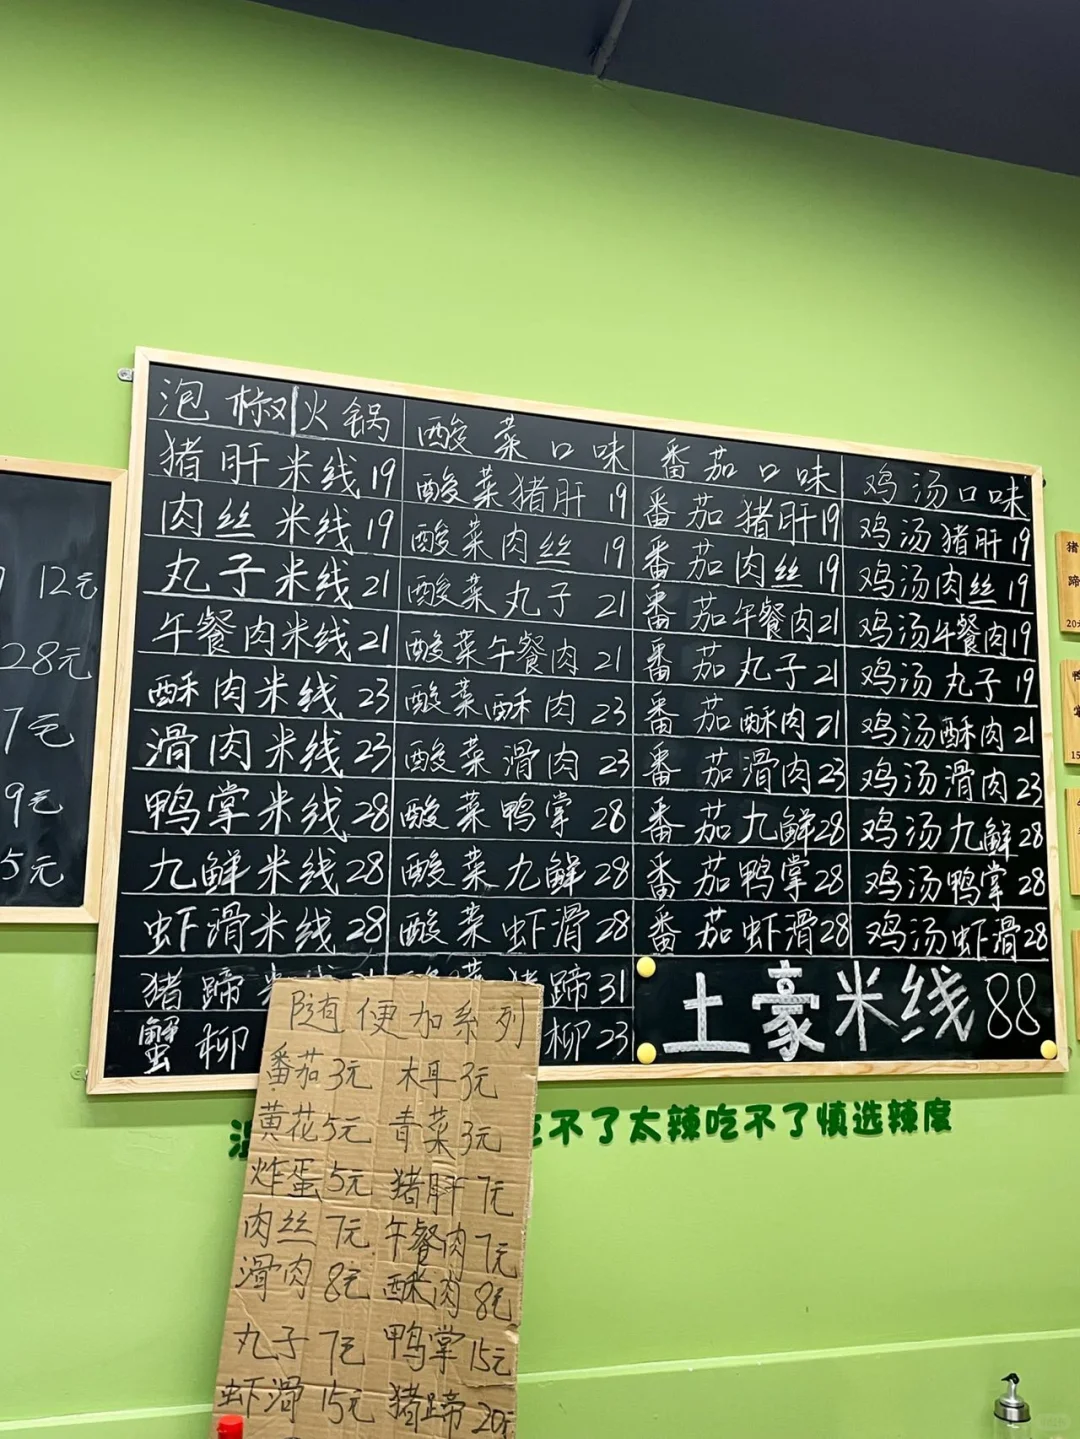 泡椒|火锅 酸菜口味 番茄口味 鸡汤口味
猪肝米线 19 酸菜猪肝 19 番茄猪肝 19 鸡汤猪肝 19
肉丝米线 19 酸菜肉丝 19 番茄肉丝 19 鸡汤肉丝 19
丸子米线 21 酸菜丸子 21 番茄午餐肉 21 鸡汤午餐肉 19
午餐肉米线 21 酸菜午餐肉 21 番茄丸子 21 鸡汤丸子 19
酥肉米线 23 酸菜酥肉 23 番茄酥肉 21 鸡汤酥肉 21
滑肉米线 23 酸菜滑肉 23 番茄滑肉 23 鸡汤滑肉 23
鸭掌米线 28 酸菜鸭掌 28 番茄九鲜 28 鸡汤九鲜 28
九鲜米线 28 酸菜九鲜 28 番茄鸭掌 28 鸡汤鸭掌 28
虾滑米线 28 酸菜虾滑 28 番茄虾滑 28 鸡汤虾滑 28
猪蹄 蹄 31 土豪米线 88
蟹柳 柳 23
12元
28元
7元
9元
5元
不了太辣吃不了慎选辣度
随便加系列
番茄 3元 木耳 3元
黄花 5元 青菜 3元
炸蛋 5元 猪肝 7元
肉丝 7元 午餐肉 7元
滑肉 8元 酥肉 8元
丸子 7元 鸭掌 15元
虾滑 15元 猪蹄 20元
猪蹄
20
15